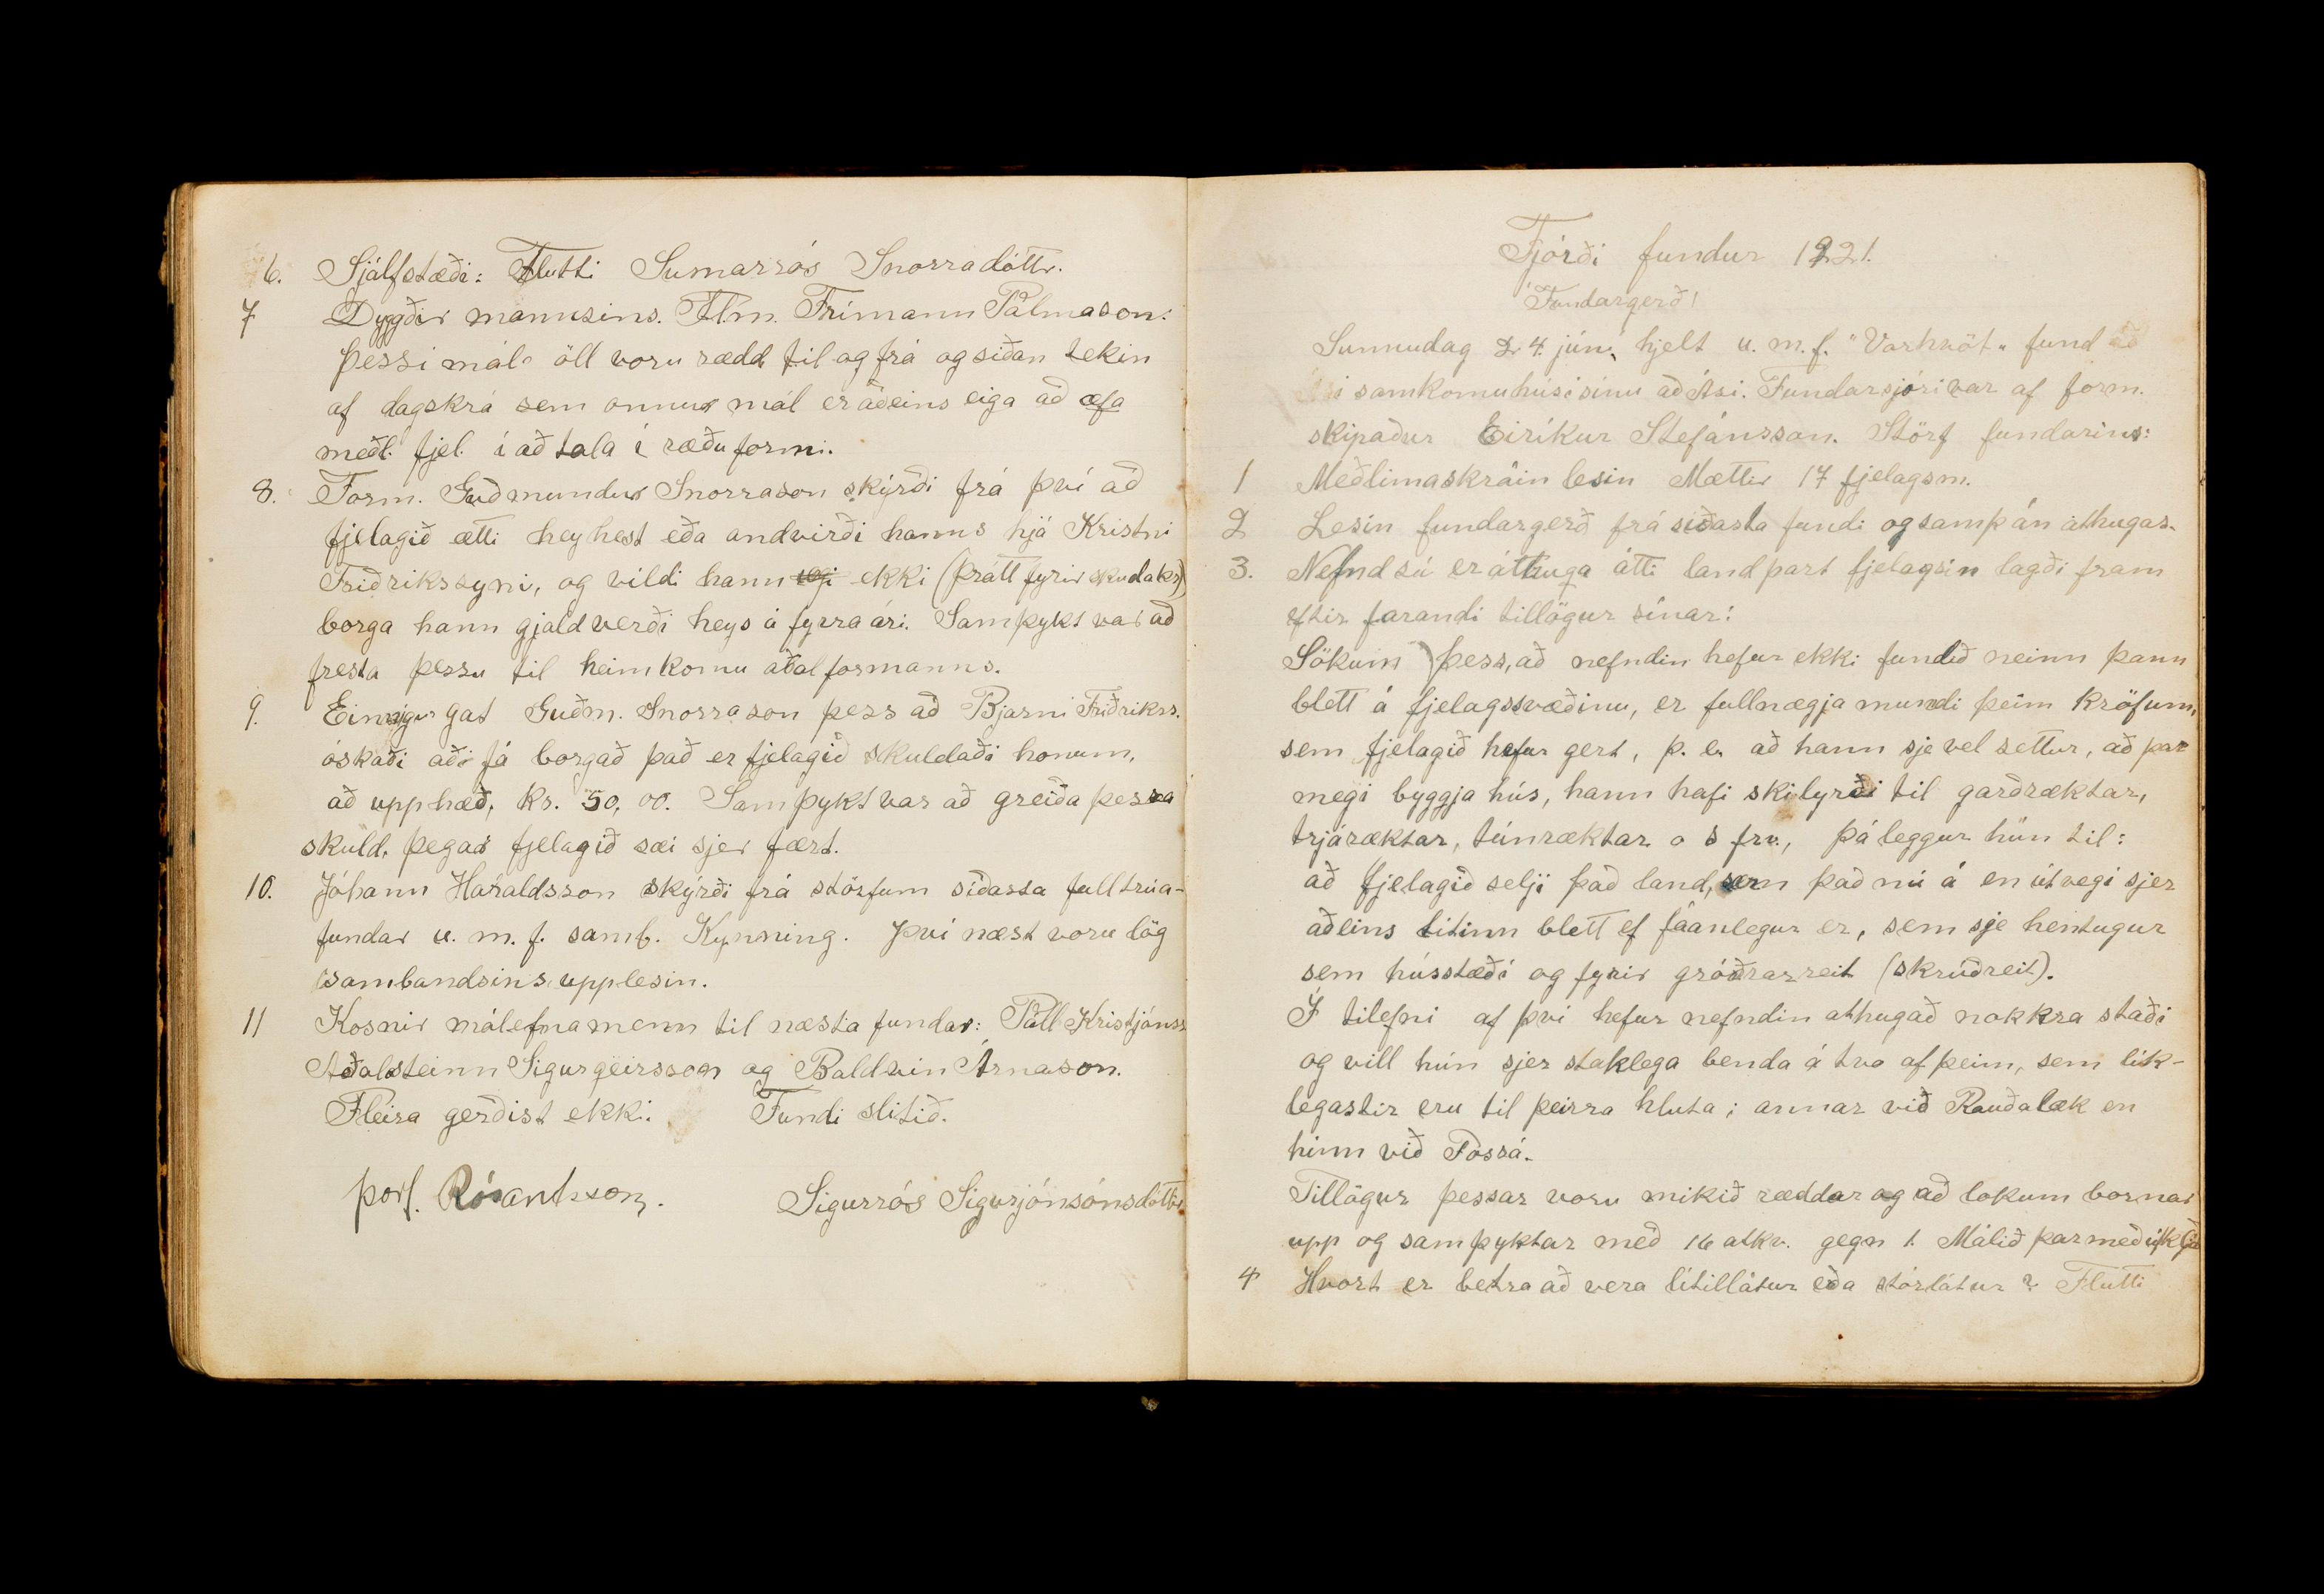 6. Sjálfstæði: Flutti Sumarrós Snorradóttr.
7 Dyggðir mannsins. Flm. Frímann Pálmason.
Þessi mál öll voru rædd til og frá og síðan tekin
af dagskrá sem önnur mál er aðeins eiga að æfa
meðl. fjel. í að tala í ræðuformi.
8. Form. Guðmundur Snorrason skýrði frá því að
fjelagið ætti heyhest eða andvirði hanns hjá Kristni
Friðrikssyni, og vildi hann ekki (þrátt fyrir skuldakr)
borga hann gjaldverði heys á fyrra ári. Samþykt var að
fresta þessu til heimkomu aðalformanns.
9. Einnigur gat Guðm. Snorrason þess að Bjarni Friðrikss.
óskaði að fá borgað það er fjelagið skuldaði honum,
að upphæð, kr. 50,00. Samþykt var að greiða þessa
skuld, þegar fjelagið sæi sjer fært.
10. Jóhann Haraldsson skýrði frá störfum síðasta fulltrúa-
fundar u. m. f. samb. Kynning. Því næst voru lög
sambandsins upplesin.
11 Kosnir málefnamenn til næsta fundar: Páll Kristjánss
Aðalsteinn Sigurgeirsson og Baldvin Árnason.
Fleira gerðist ekki. Fundi slitið.
Þorf. Rósantsson. Sigurrós Sigurjónsónsdóttir
Fjórði fundur 1921.
Fundargerð!
Sunnudag 24. júní, hjelt u. m. f. "Vorhvöt" fund að
samkomuhúsi sínu að Ási. Fundarsjóri var af form.
skipaður Eiríkur Stefánsson. Störf fundarins:
1 Meðlimaskráin lesin Mættir 17 fjelagsm.
2 Lesin fundargerð frá síðasta fundi og samþ án athugas.
3. Nefnd sú er áthuga átti landpart fjelagsin lagði fram
eftir farandi tillögur sínar:
Sökum þess, að nefndin hefur ekki fundið neinn þann
blett á fjelagssvæðinu, er fullnægja mundi þeim kröfum,
sem fjelagið hefur gert, þ. e. að hann sje vel settur, að þar
megi byggja hús, hann hafi skilyrði til garðræktar,
trjáræktar, túnræktar o s frv., þá leggur hún til:
að fjelagið selji það land, sem það nú á en útvegi sjer
aðeins lítinn blett ef fáanlegur er, sem sje hentugur
sem hússtæði og fyrir gróðrarreit (skrúðreit).
Í tilefni af því hefur nefndin athugað nokkra staði
og vill hún sjer staklega benda á tvo af þeim, sem lík-
legastir eru til þeirra hluta; annar við Rauðalæk en
hinn við Fossá.
Tillögur þessar voru mikið ræddar og að lokum bornar
upp og samþyktar með 16 atkv. gegn 1. Málið þarmeð útkljáð
4 Hvort er betra að vera lítillátur eða stórlátur? Flutti